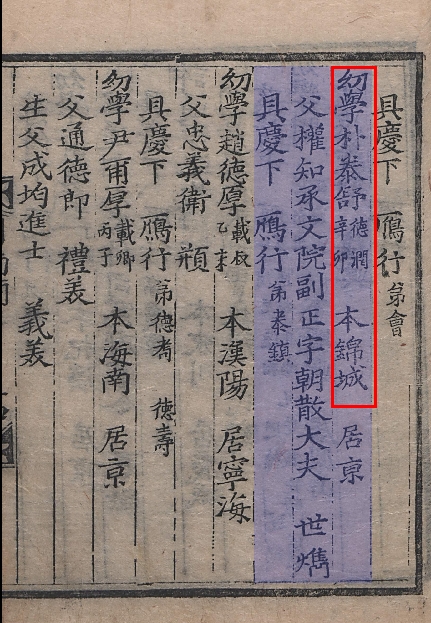 具慶下 鴈行 弟會
幼學朴泰舒 德潤 辛卯 本錦城 居京
父權知承文院副正字朝散大夫 世儁
具慶下 鴈行 弟泰鎭
幼學趙德厚 載叔 乙未 本漢陽 居寧海
父忠義衛 頫
具慶下 鴈行 弟德耉 德壽
幼學尹爾厚 載卿 丙子 本海南 居京
父通德郎 禮美
生父成均進士 義美